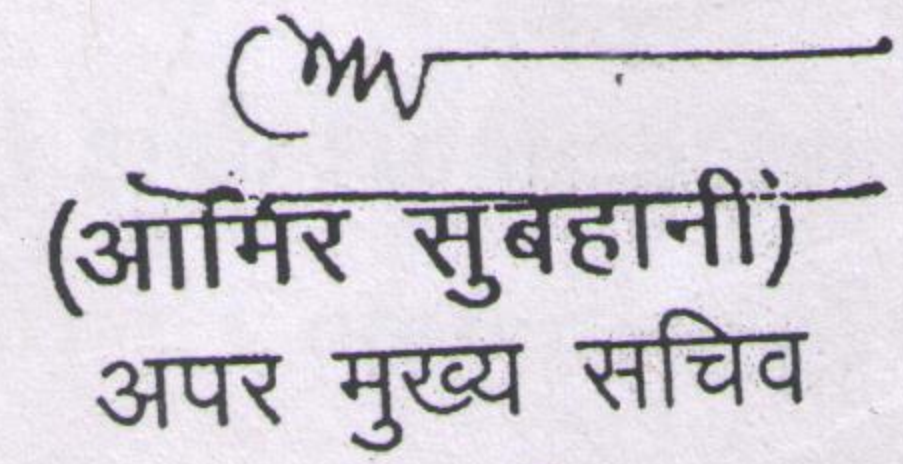 (आमिर सुबहानी)
अपर मुख्य सचिव